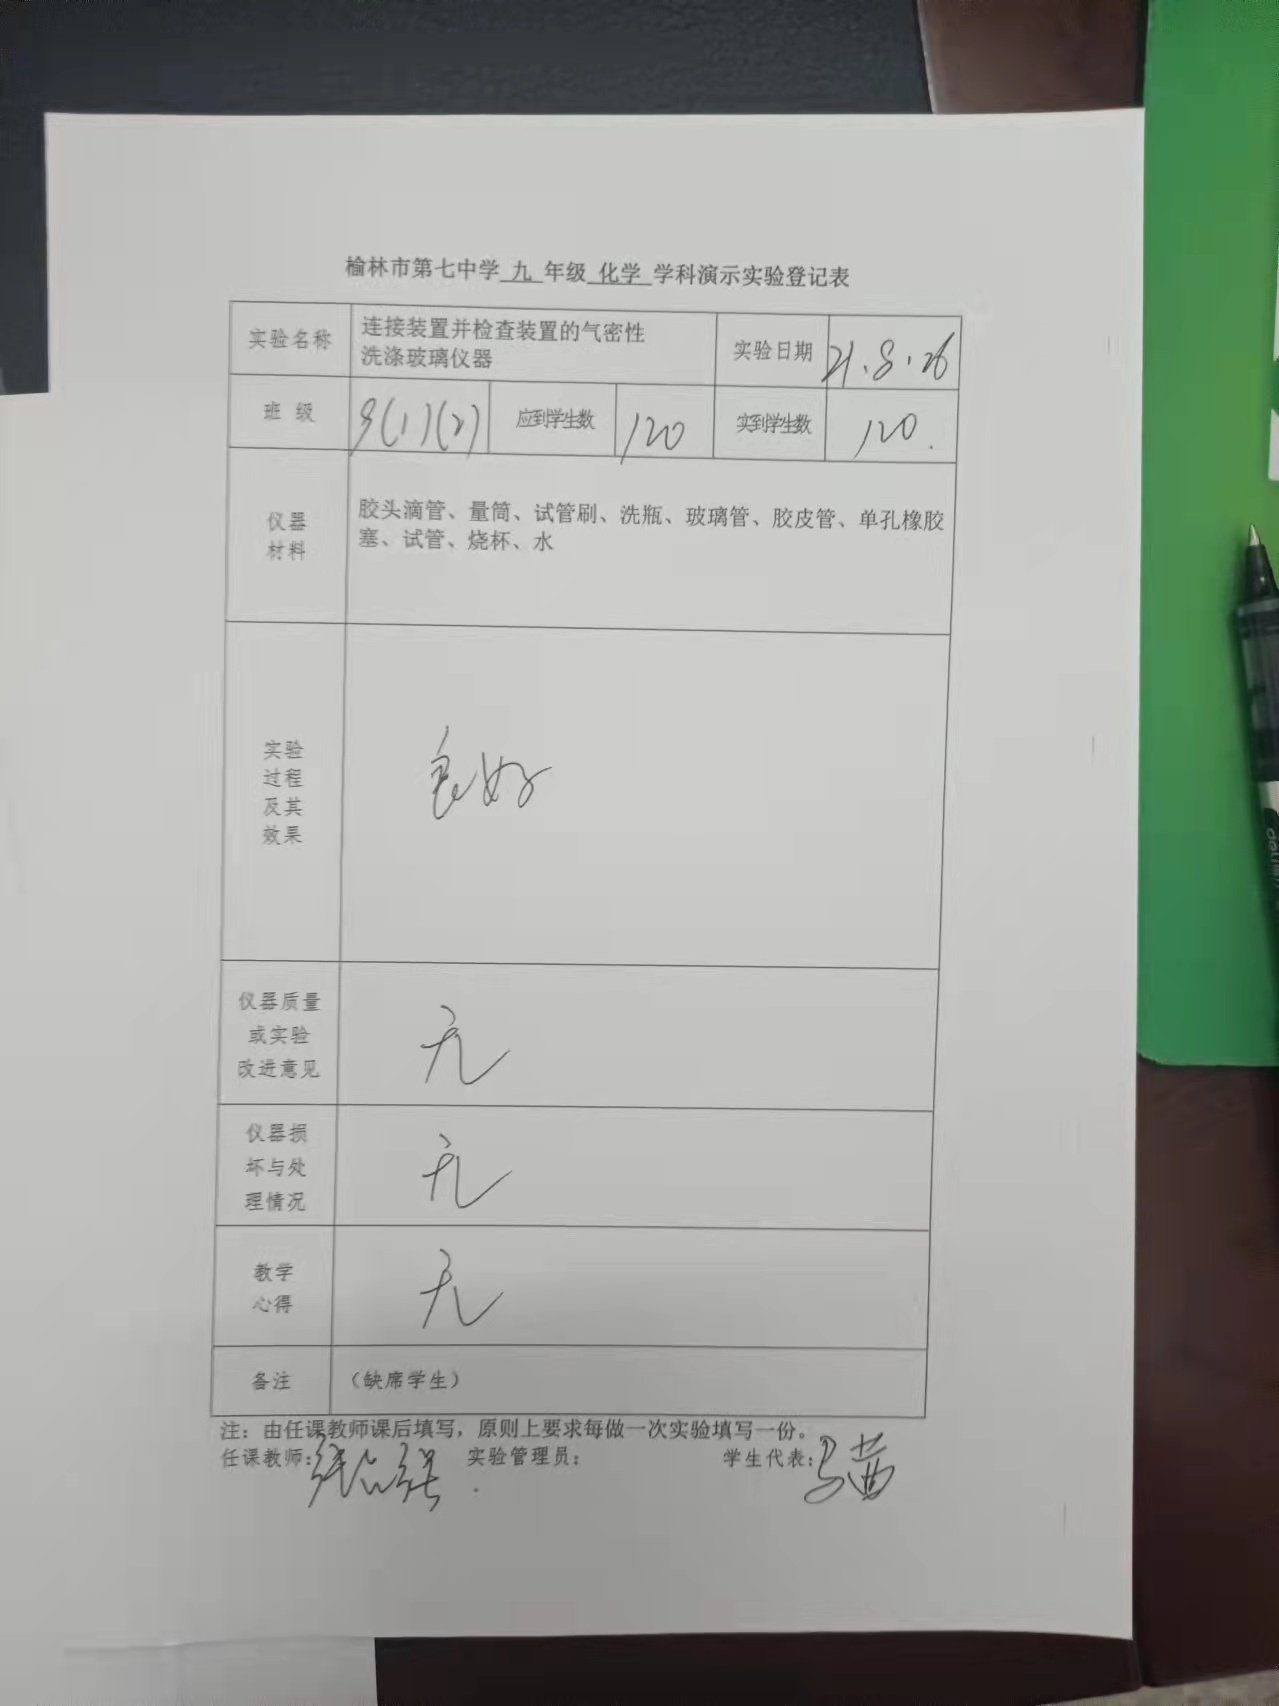 榆林市第七中学 九 年级 化学 学科演示实验登记表
实验名称
连接装置并检查装置的气密性
洗涤玻璃仪器
实验日期
21.8.26
班 级
9(1)(2)
应到学生数
120
实到学生数
120.
仪器
材料
胶头滴管、量筒、试管刷、洗瓶、玻璃管、胶皮管、单孔橡胶
塞、试管、烧杯、水
实验
过程
及其
效果
良好
仪器质量
或实验
改进意见
无
仪器损
坏与处
理情况
无
教学
心得
无
备注
（缺席学生）
注：由任课教师课后填写，原则上要求每做一次实验填写一份。
任课教师: 实验管理员: 学生代表: 马茜